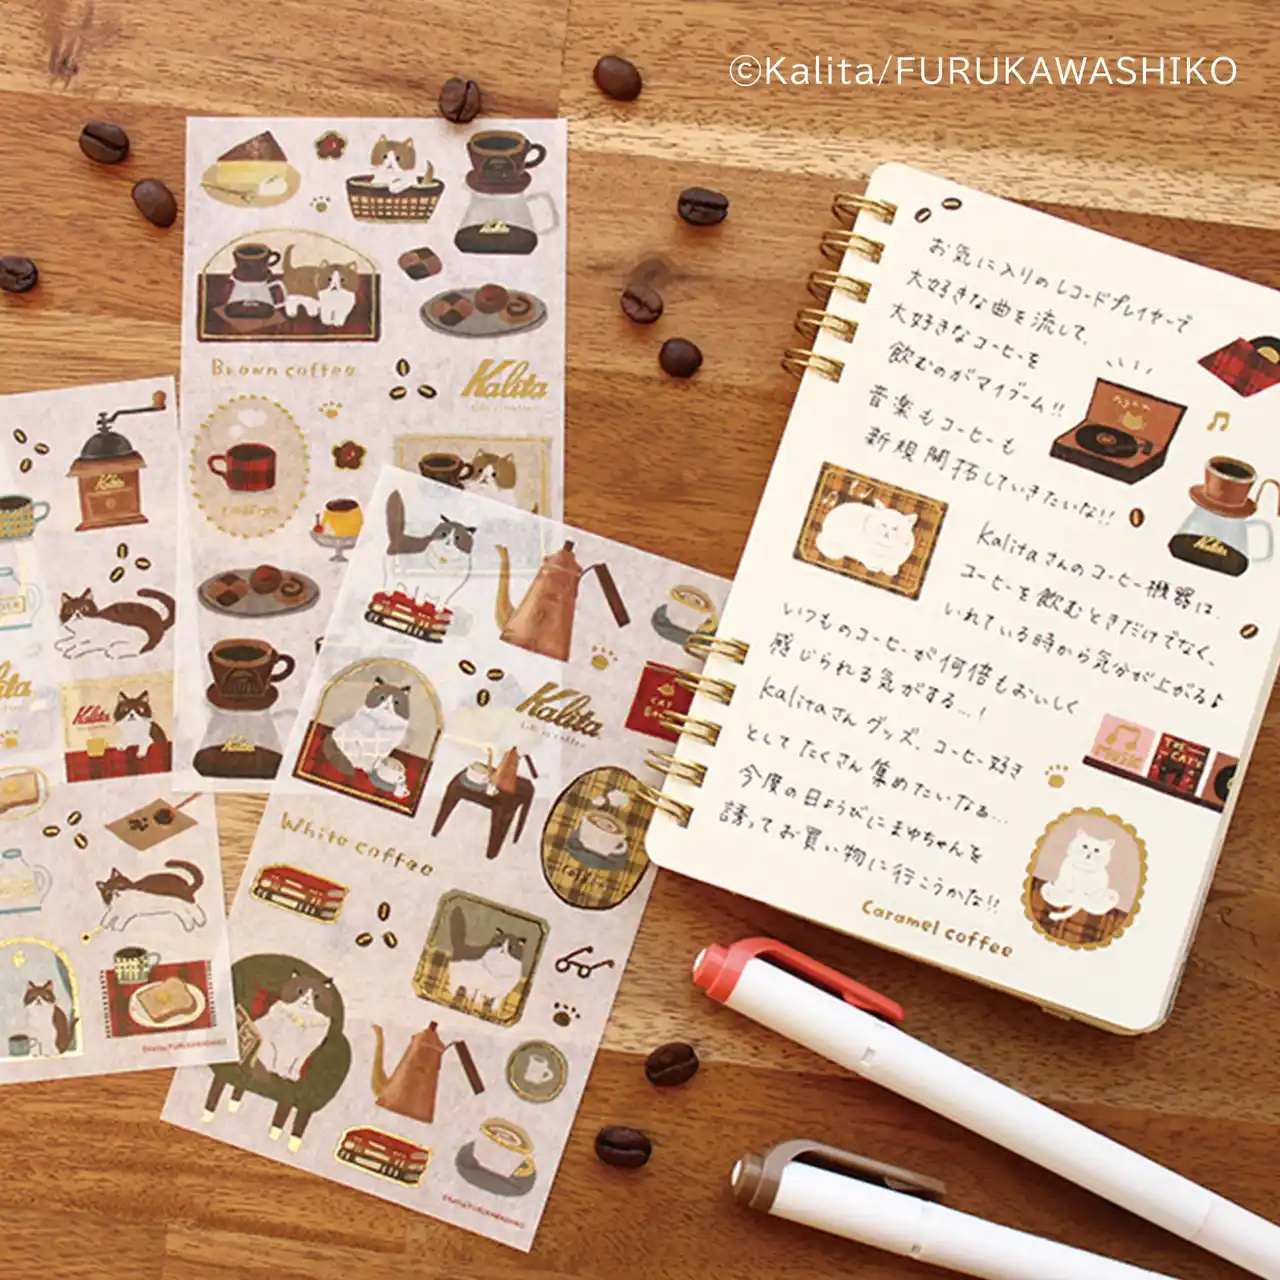 ©Kalita/FURUKAWASHIKO
Brown coffee
Kalita
Kalita
Kalita
Kalita
Kalita
coffee
Kalita
White coffee
©Kalita/FURUKAWASHIKO
©Kalita/FURUKAWASHIKO
お気に入りのレコードプレイヤーで
大好きな曲を流して、
大好きなコーヒーを
飲むのがマイブーム!!
音楽もコーヒーも
新規開拓していきたいな!!
Kalita
Kalitaさんのコーヒー機器は、
コーヒーを飲むときだけでなく、
いれている時から気分が上がる♪
いつものコーヒーが何倍もおいしく
感じられる気がする…!
Kalitaさんグッズ、コーヒー好き
としてたくさん集めたいなぁ…
今度の日ようびにまゆちゃんを
誘ってお買い物に行こうかな!!
MUSIC
THE CAT'S
Caramel coffee